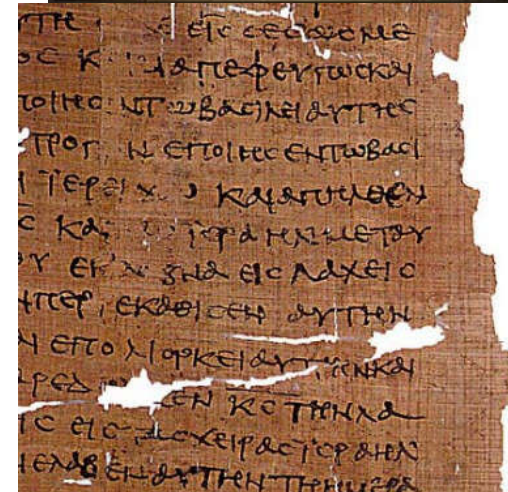 ΕΙϹ ϹΕϹΩϹΜΕ
ΟϹ Κ ΙΑΠΕΦΕΥΓΩϹΚΑΙ
ΠΟΙΗϹ ΝΤΩΒΑϹΙΛΕΙΑΥΤΗϹ
ΤΡΟΠ Ν ΕΠΟΙΗϹΕΝΤΩΒΑϹΙ
Ι ΙΕΡΕΙΧ ΚΑΙΑΠΗΛΘΕΝ
Ϲ ΚΑ ΙϹΡΑΗΛ ΜΕΤΑΥ
ΟΥ ΕΚ ΕΙϹ ΛΑΧΕΙϹ
ΠΕΡΙΕΚΑΘΙϹΕΝ ΑΥΤΗΝ
Ι ΕΠΟΛΙΟΡΚΕΙΑΥΤΗΝΚΑΙ
ΑΡΕΔ ΚΕΝ ΚϹ ΤΗΝΛΑ
ΙϹ ΕΙϹ ΑϹΧΕΙΡΑϹΙϹΡΑΗΛ
Ι ΕΛΑΒΕΝΑΥΤΗΝ